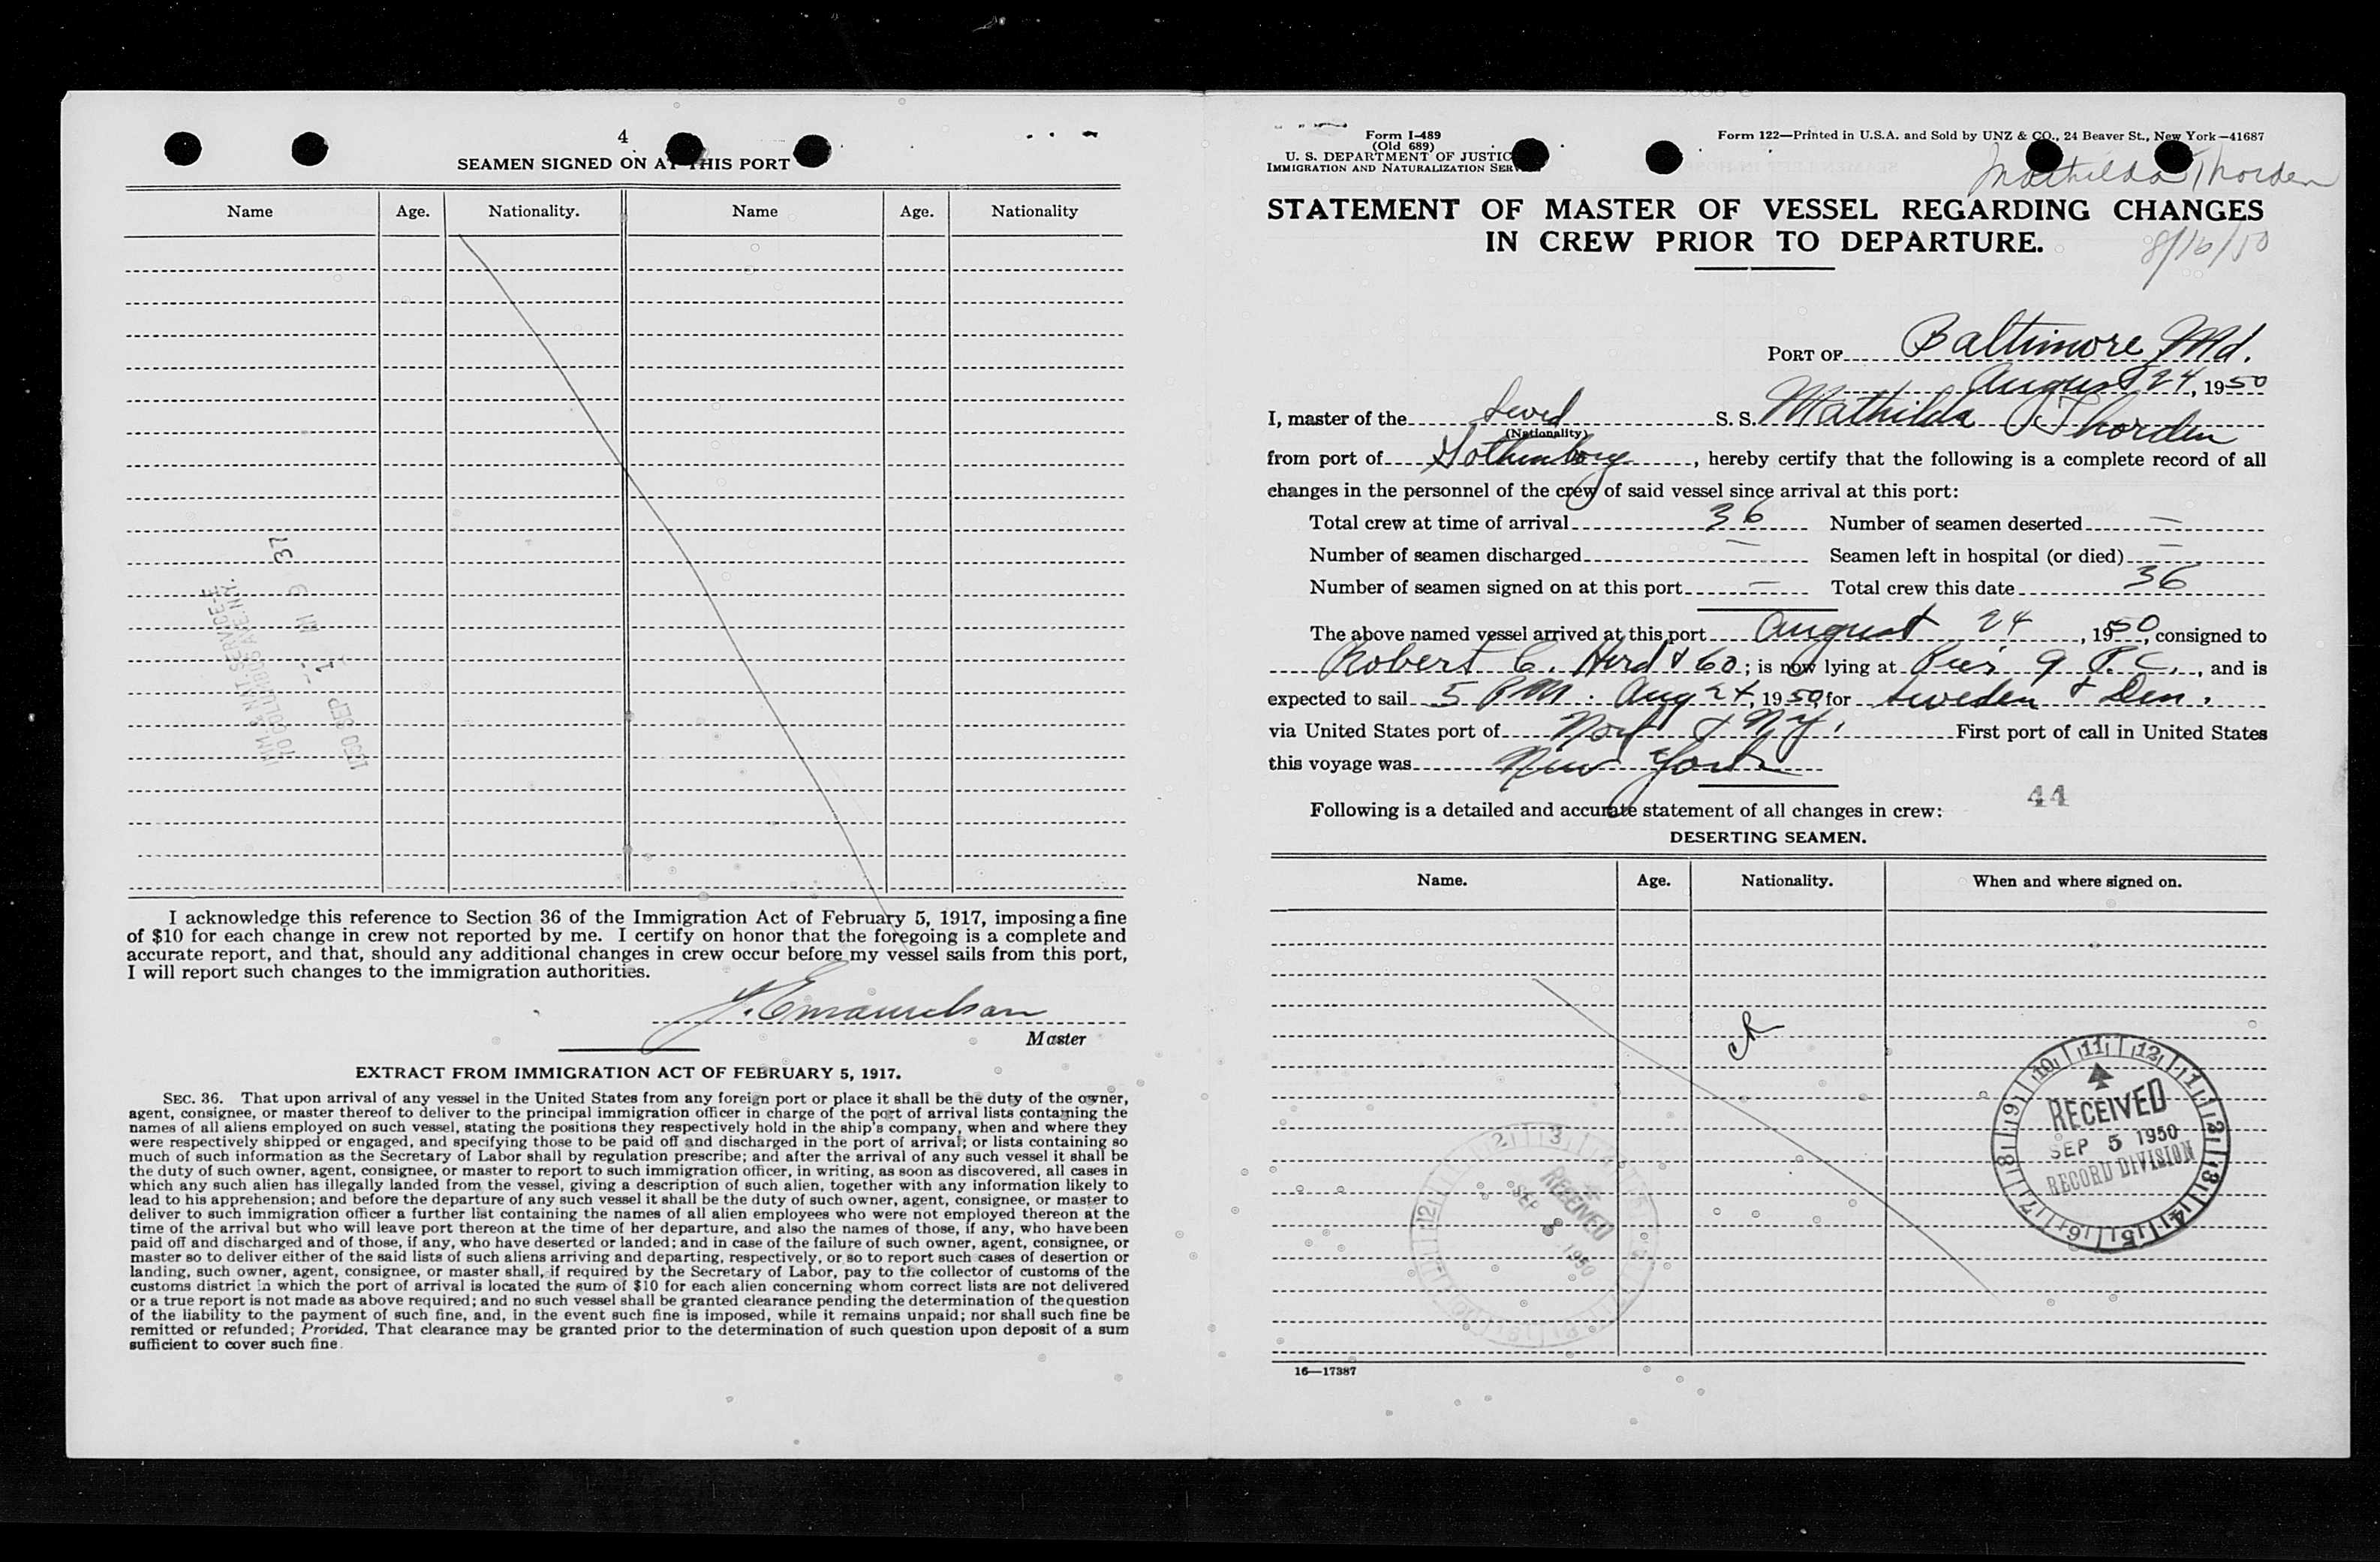 4
SEAMEN SIGNED ON AT THIS PORT
Name Age. Nationality. Name Age. Nationality
IMM. & NAT. SERVICE
70 COLUMBUS AVE. N.Y.
1950 SEP -1 9 37
I acknowledge this reference to Section 36 of the Immigration Act of February 5, 1917, imposing a fine
of $10 for each change in crew not reported by me. I certify on honor that the foregoing is a complete and
accurate report, and that, should any additional changes in crew occur before my vessel sails from this port,
I will report such changes to the immigration authorities.
Emanuelson
Master
EXTRACT FROM IMMIGRATION ACT OF FEBRUARY 5, 1917.
SEC. 36. That upon arrival of any vessel in the United States from any foreign port or place it shall be the duty of the owner,
agent, consignee, or master thereof to deliver to the principal immigration officer in charge of the port of arrival lists containing the
names of all aliens employed on such vessel, stating the positions they respectively hold in the ship's company, when and where they
were respectively shipped or engaged, and specifying those to be paid off and discharged in the port of arrival; or lists containing so
much of such information as the Secretary of Labor shall by regulation prescribe; and after the arrival of any such vessel it shall be
the duty of such owner, agent, consignee, or master to report to such immigration officer, in writing, as soon as discovered, all cases in
which any such alien has illegally landed from the vessel, giving a description of such alien, together with any information likely to
lead to his apprehension; and before the departure of any such vessel it shall be the duty of such owner, agent, consignee, or master to
deliver to such immigration officer a further list containing the names of all alien employees who were not employed thereon at the
time of the arrival but who will leave port thereon at the time of her departure, and also the names of those, if any, who have been
paid off and discharged and of those, if any, who have deserted or landed; and in case of the failure of such owner, agent, consignee, or
master so to deliver either of the said lists of such aliens arriving and departing, respectively, or so to report such cases of desertion or
landing, such owner, agent, consignee, or master shall, if required by the Secretary of Labor, pay to the collector of customs of the
customs district in which the port of arrival is located the sum of $10 for each alien concerning whom correct lists are not delivered
or a true report is not made as above required; and no such vessel shall be granted clearance pending the determination of the question
of the liability to the payment of such fine, and, in the event such fine is imposed, while it remains unpaid; nor shall such fine be
remitted or refunded; Provided, That clearance may be granted prior to the determination of such question upon deposit of a sum
sufficient to cover such fine.
Form I-489
(Old 689)
U. S. DEPARTMENT OF JUSTIC
IMMIGRATION AND NATURALIZATION SER
Form 122—Printed in U.S.A. and Sold by UNZ & CO., 24 Beaver St., New York—41687
Mathilda Thorden
STATEMENT OF MASTER OF VESSEL REGARDING CHANGES
IN CREW PRIOR TO DEPARTURE.
8/16/50
PORT OF Baltimore Md.
August 24, 1950
I, master of the Swed S. S. Mathilda Thorden
(Nationality)
from port of Gothenborg, hereby certify that the following is a complete record of all
changes in the personnel of the crew of said vessel since arrival at this port:
Total crew at time of arrival 36 Number of seamen deserted —
Number of seamen discharged — Seamen left in hospital (or died) —
Number of seamen signed on at this port — Total crew this date 36
The above named vessel arrived at this port August 24, 1950, consigned to
Robert C. Herd & Co.; is now lying at Pier 9 P.C., and is
expected to sail 5 PM. Aug 24, 1950, for Sweden & Den.
via United States port of Norf & N.Y. First port of call in United States
this voyage was New York
Following is a detailed and accurate statement of all changes in crew:
44
DESERTING SEAMEN.
Name. Age. Nationality. When and where signed on.
RECEIVED
SEP 5 1950
RECORD DIVISION
RECEIVED
SEP 1950
16—17387